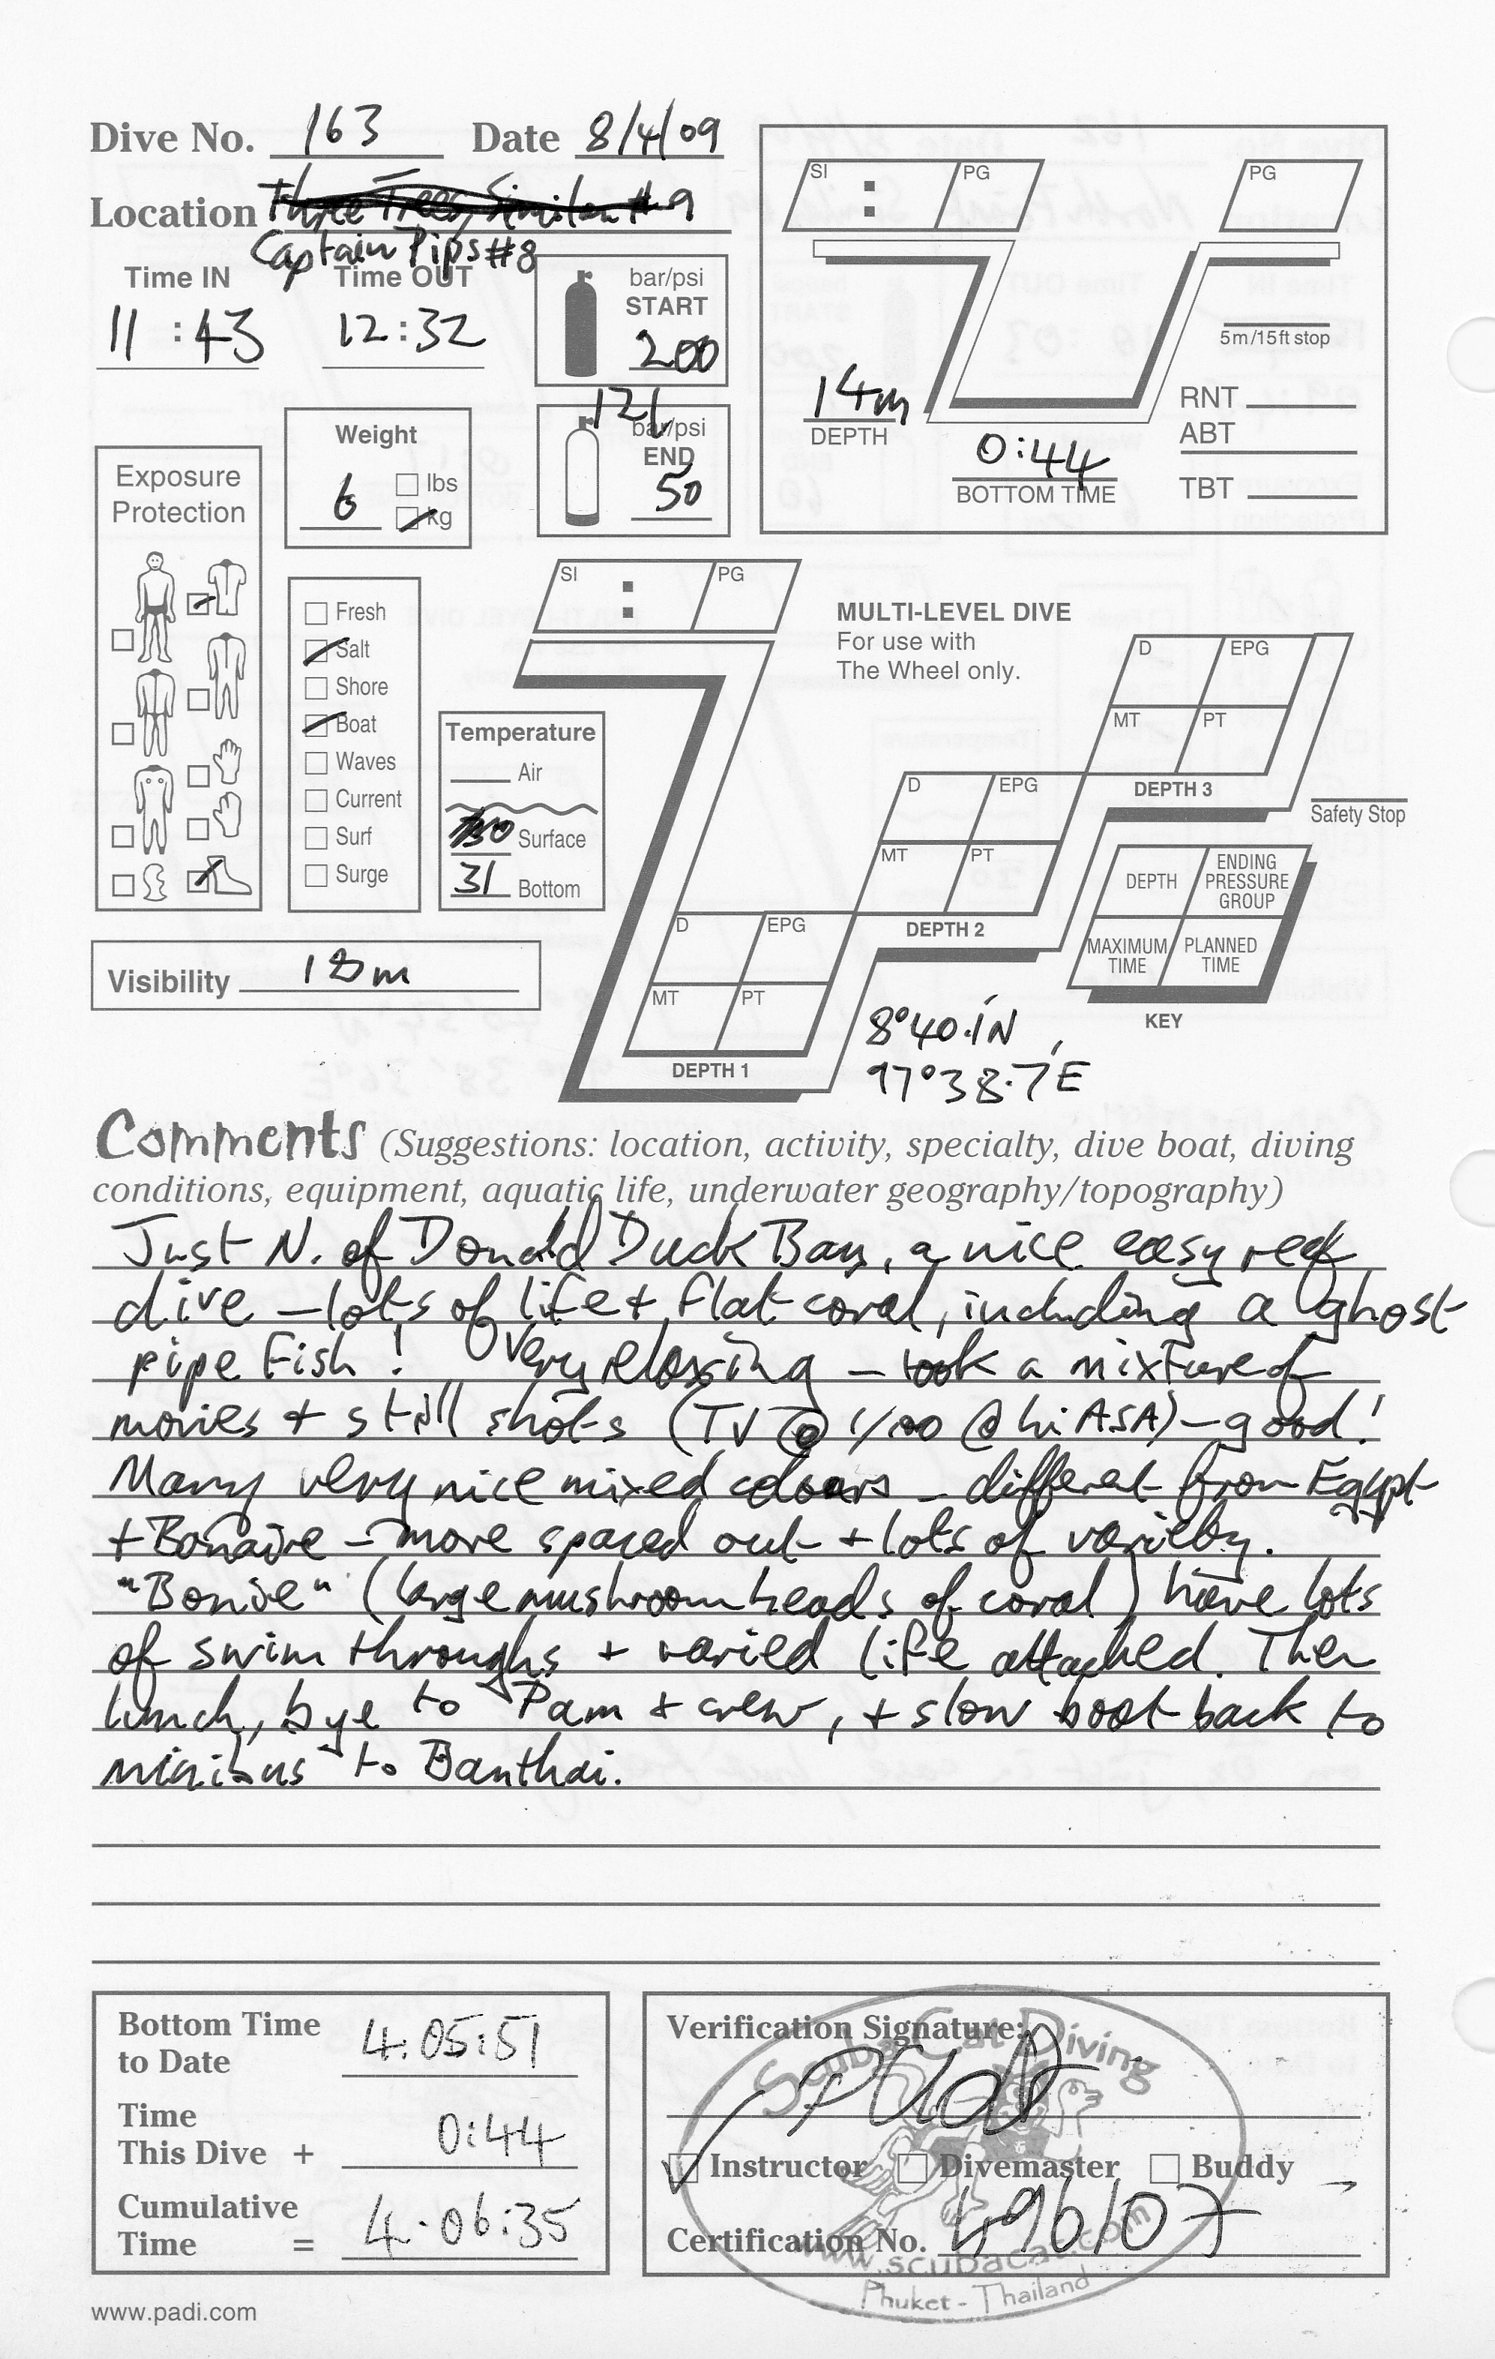 Dive No. 163 Date 8/4/09
Location Three Trees, Similan # 9
Captain Pips #8
Time IN Time OUT
11 : 43 12:32
bar/psi
START
200
121
bar/psi
END
50
Weight
6 lbs
kg
Exposure
Protection
SI : PG PG
5m/15ft stop
14m
DEPTH
0:44
BOTTOM TIME
RNT
ABT
TBT
Fresh
Salt
Shore
Boat
Waves
Current
Surf
Surge
Temperature
Air
30 Surface
31 Bottom
Visibility 18m
SI : PG
MULTI-LEVEL DIVE
For use with
The Wheel only.
D EPG
MT PT
DEPTH 3
D EPG
MT PT
DEPTH 2
D EPG
MT PT
DEPTH 1
Safety Stop
DEPTH ENDING PRESSURE GROUP
MAXIMUM TIME PLANNED TIME
KEY
8°40.1'N
97°38.7'E
Comments (Suggestions: location, activity, specialty, dive boat, diving
conditions, equipment, aquatic life, underwater geography/topography)
Just N. of Donald Duck Bay, a nice easy reef
dive - lots of life + flat coral, including a ghost
pipe fish! Very relaxing - took a mixture of
movies + still shots (TV @ 1/100 @ hi ASA) - good!
Many very nice mixed colours - different from Egypt
+ Bonaire - more spaced out + lots of variety.
"Bonsie" (large mushroom heads of coral) have lots
of swim throughs + varied life attached. Then
lunch, bye to Pam + crew, + slow boat back to
minibus to Banthai.
Bottom Time
to Date 4.05:51
Time
This Dive + 0:44
Cumulative
Time = 4.06:35
Verification Signature:
Instructor Divemaster Buddy
Certification No. 496107
Scuba Cat Diving
www.scubacat.com
Phuket - Thailand
www.padi.com